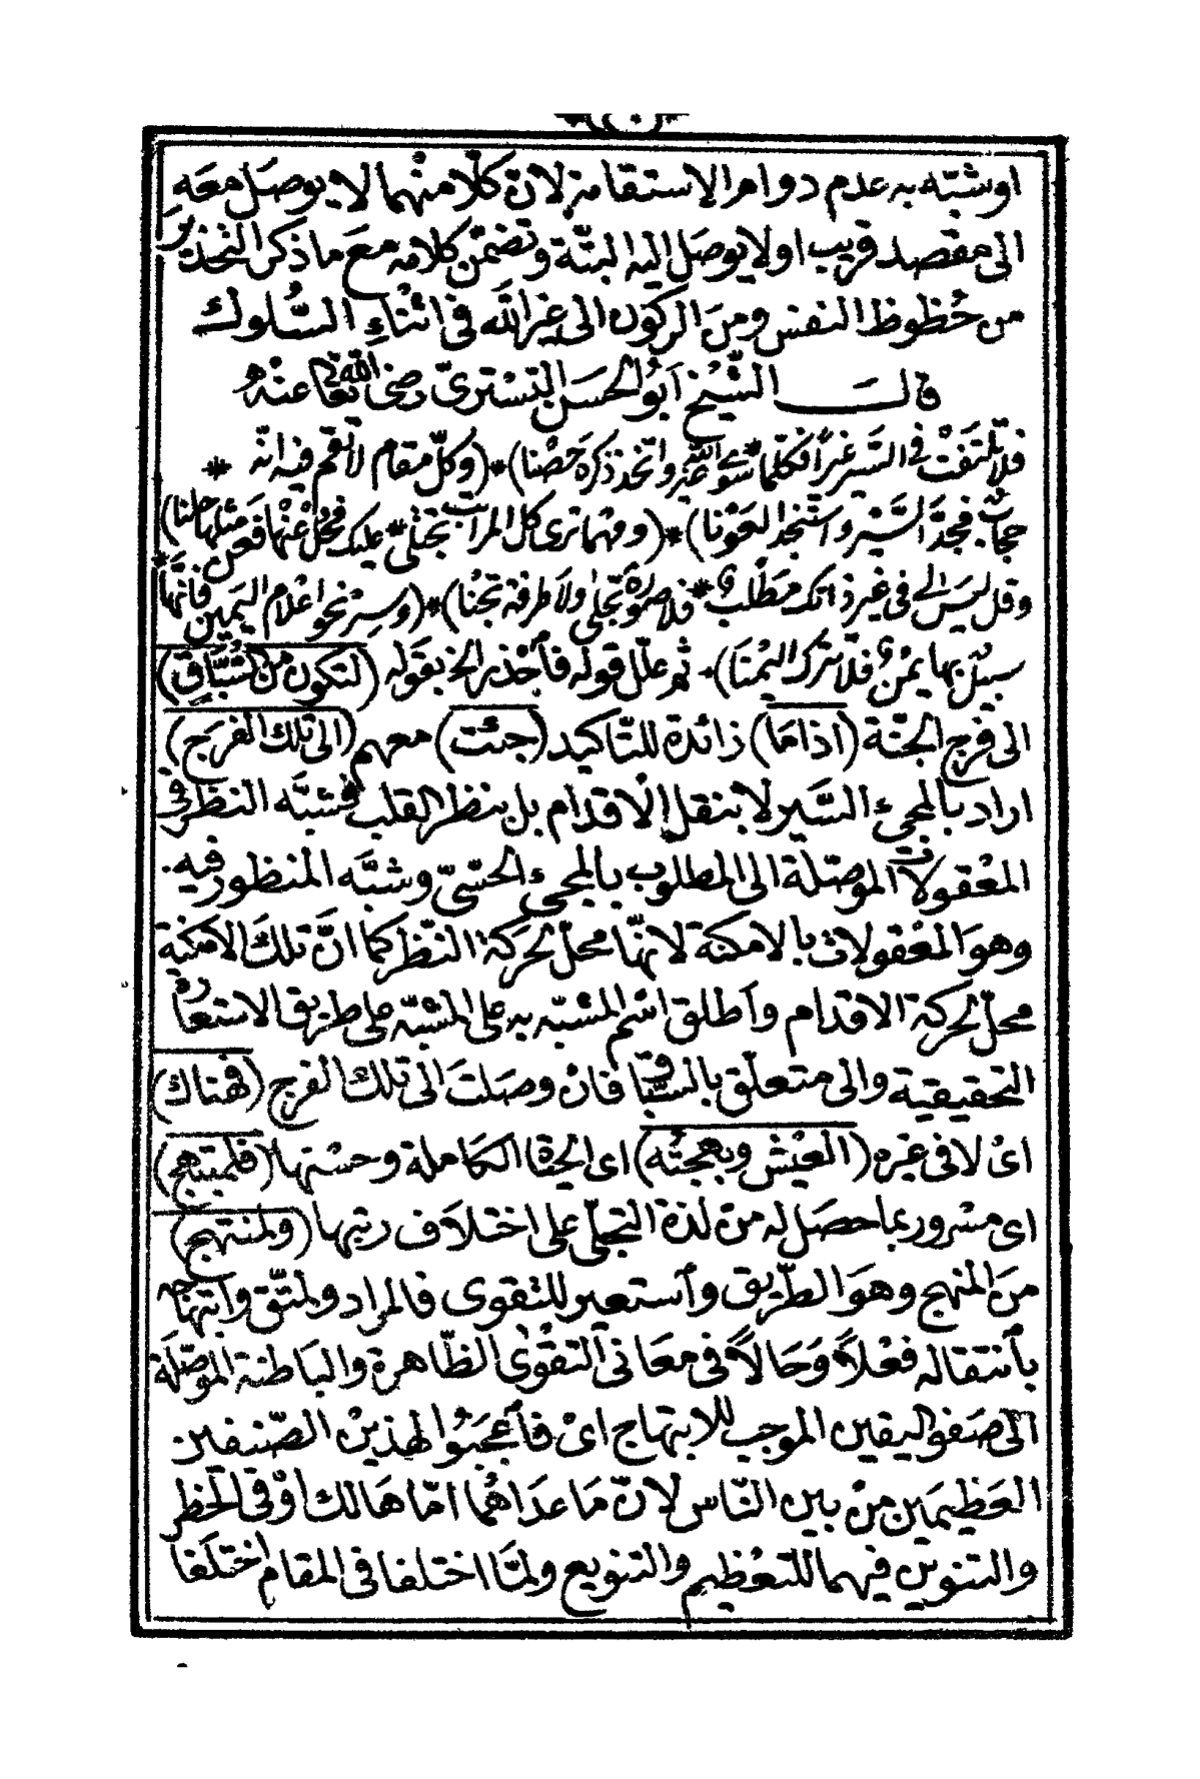 او شبّه به عدم دوام الاستقامة لانّ كلّا منهما لا يوصل معه
الى مقصد قريب او لا يوصل اليه البتّة وتضمّن كلامه مع ما ذكر التحذير
من حُظوظ النفس ومن الركون الى غير اللّه فى اثناءِ السُّلوك
قالــــ الشّيخ ابُو الحسَن التسْترىّ رضى اللّه تعا عنْه
فلا تلتفت في السَّير غيرًا فكلّما * سوى اللّه غير واتخذ ذكره حَصْنا) * (وكلّ مقام لا تقم فيه انّه *
حجابٌ فجدّ السَّيْر واستنجد العَوْنا) * (ومهْما ترى كل المراتب تجتلى * عليك فحُلْ عنْها فعن مثلها حلنا)
وقل ليسَ لي فى غير ذاتك مَطْلبٌ * فلا صورةٌ تجلى ولا طرفة تجْنا) * (وسِرْ نحو اعْلام اليَمين فانّها *
سبيلٌ بها يمْنٌ فلا تترك اليُمْنا) * ثم علّل قوله فأحْذر الخ بقوله (لتكون من السُّبَّاقِ)
الى فرج الجنّة (اذا مَا) زائدة للتّاكيد (جئت) معهم (الى تلك الفرَج)
اراد بالمجىء السَّير لا بنقل الْاقدام بل بنظر القلب فشبَّه النظر فى
المعْقولات الموصّلة الى المطلوب بالمجىء الحسّىّ وشبَّه المنظور فيه
وهوَ المعْقولات بالامكنة لانهّا محلّ لحركة النّظر كما انَّ تلكَ الامكنة
محلّ لحركة الاقدام وأطلق اسْم المشبّه به على المشبّه على طريق الاستعارة
التحقيقية والى متعلّق بالسّباق فانْ وصَلتَ الى تلك الفرج (فهناك)
اىْ لا فى غيره (العَيْش وبهجتُه) اى الحيٰة الكاملة وحسْنها (فلمبتهج)
اى مسْرور بما حصَل له من لذة التجلّى على اختلَاف رتبها (ولمنتهج)
منَ المنهج وهوَ الطّريق وأستعير للتقوى فالمراد ولمتّق وانتهاجه
بأنتقاله فعْلاً وَحَالاً فى معَانى التقْوٰى الظّاهرة والبَاطنة الموصّلَة
الى صَفو اليقين الموجب للابتهاج اىْ فأعْجبُوا لهذيْن الصّنفين
العَظيمَين منْ بين النّاس لانّ مَا عدَاهُما امّا هَالك أوْ فى الخطر
والتنوين فيهما للتعْظيم والتنويع ولمّا اختلفا فى المقام اختلَفا